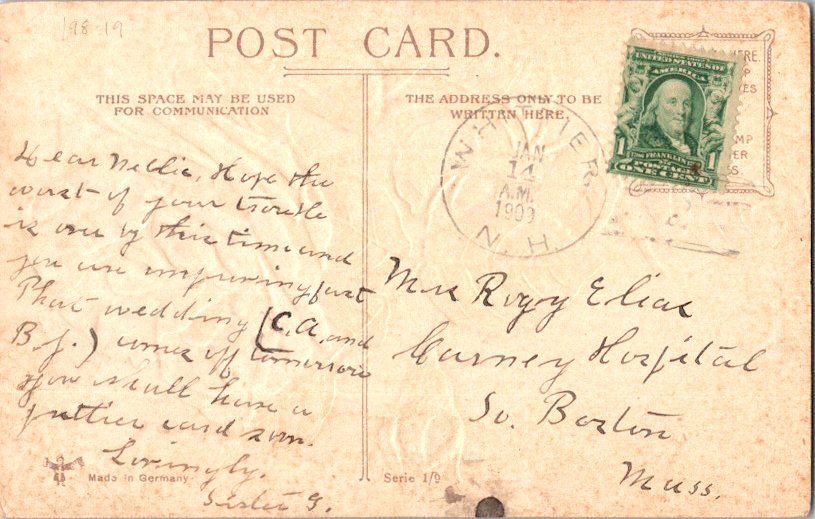 198-19
POST CARD.
THIS SPACE MAY BE USED
FOR COMMUNICATION
THE ADDRESS ONLY TO BE
WRITTEN HERE.
UNITED STATES OF
AMERICA
FRANKLIN
1 POSTAGE 1
ONE CENT
WHITTIER.
JAN
14
A.M.
1909
N. H.
Dear Nellie, Hope the
worst of your trouble
is over by this time and
you are improving fast
That wedding (C.A. and
B.J.) comes off tomorrow
You shall have a
card soon.
Lovingly.
Sister G.
Elias
Carney Hospital
So. Boston
Mass.
Made in Germany
Serie 1/9